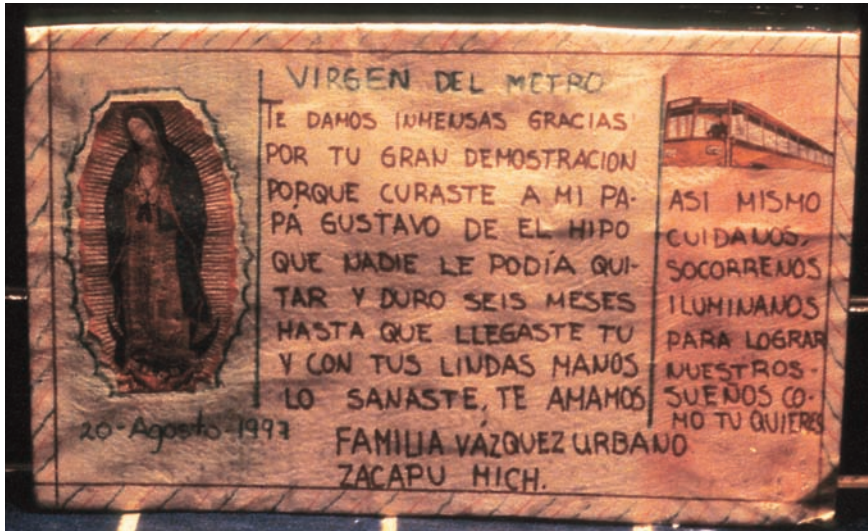 VIRGEN DEL METRO
TE DAMOS INMENSAS GRACIAS
POR TU GRAN DEMOSTRACION
PORQUE CURASTE A MI PA-
PÁ GUSTAVO DE EL HIPO
QUE NADIE LE PODÍA QUI-
TAR Y DURO SEIS MESES
HASTA QUE LLEGASTE TU
Y CON TUS LINDAS MANOS
LO SANASTE, TE AMAMOS
ASI MISMO
CUIDANOS,
SOCORRENOS
ILUMINANOS
PARA LOGRAR
NUESTROS-
SUEÑOS CO-
MO TU QUIERES
20-Agosto-1997
FAMILIA VÁZQUEZ URBANO
ZACAPU MICH.